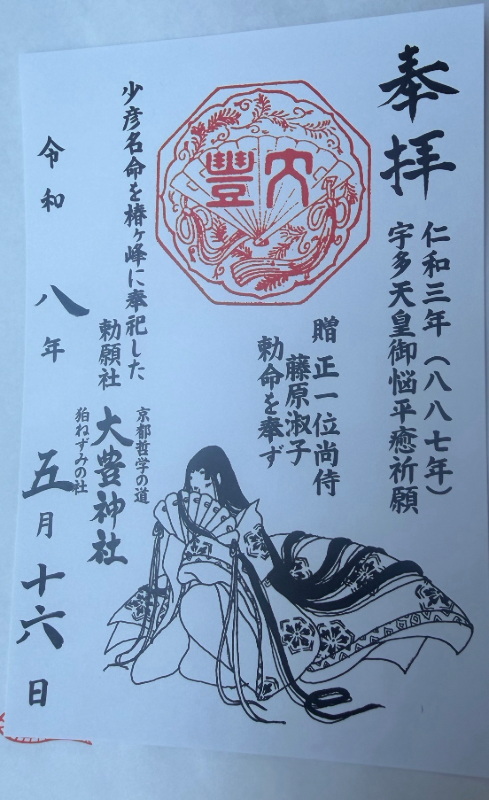 奉拝
仁和三年（八八七年）
宇多天皇御悩平癒祈願
贈 正一位尚侍
藤原淑子
勅命を奉ず
大豐
少彦名命を椿ヶ峰に奉祀した
勅願社
京都哲学の道
大豊神社
狛ねずみの社
令和八年五月十六日